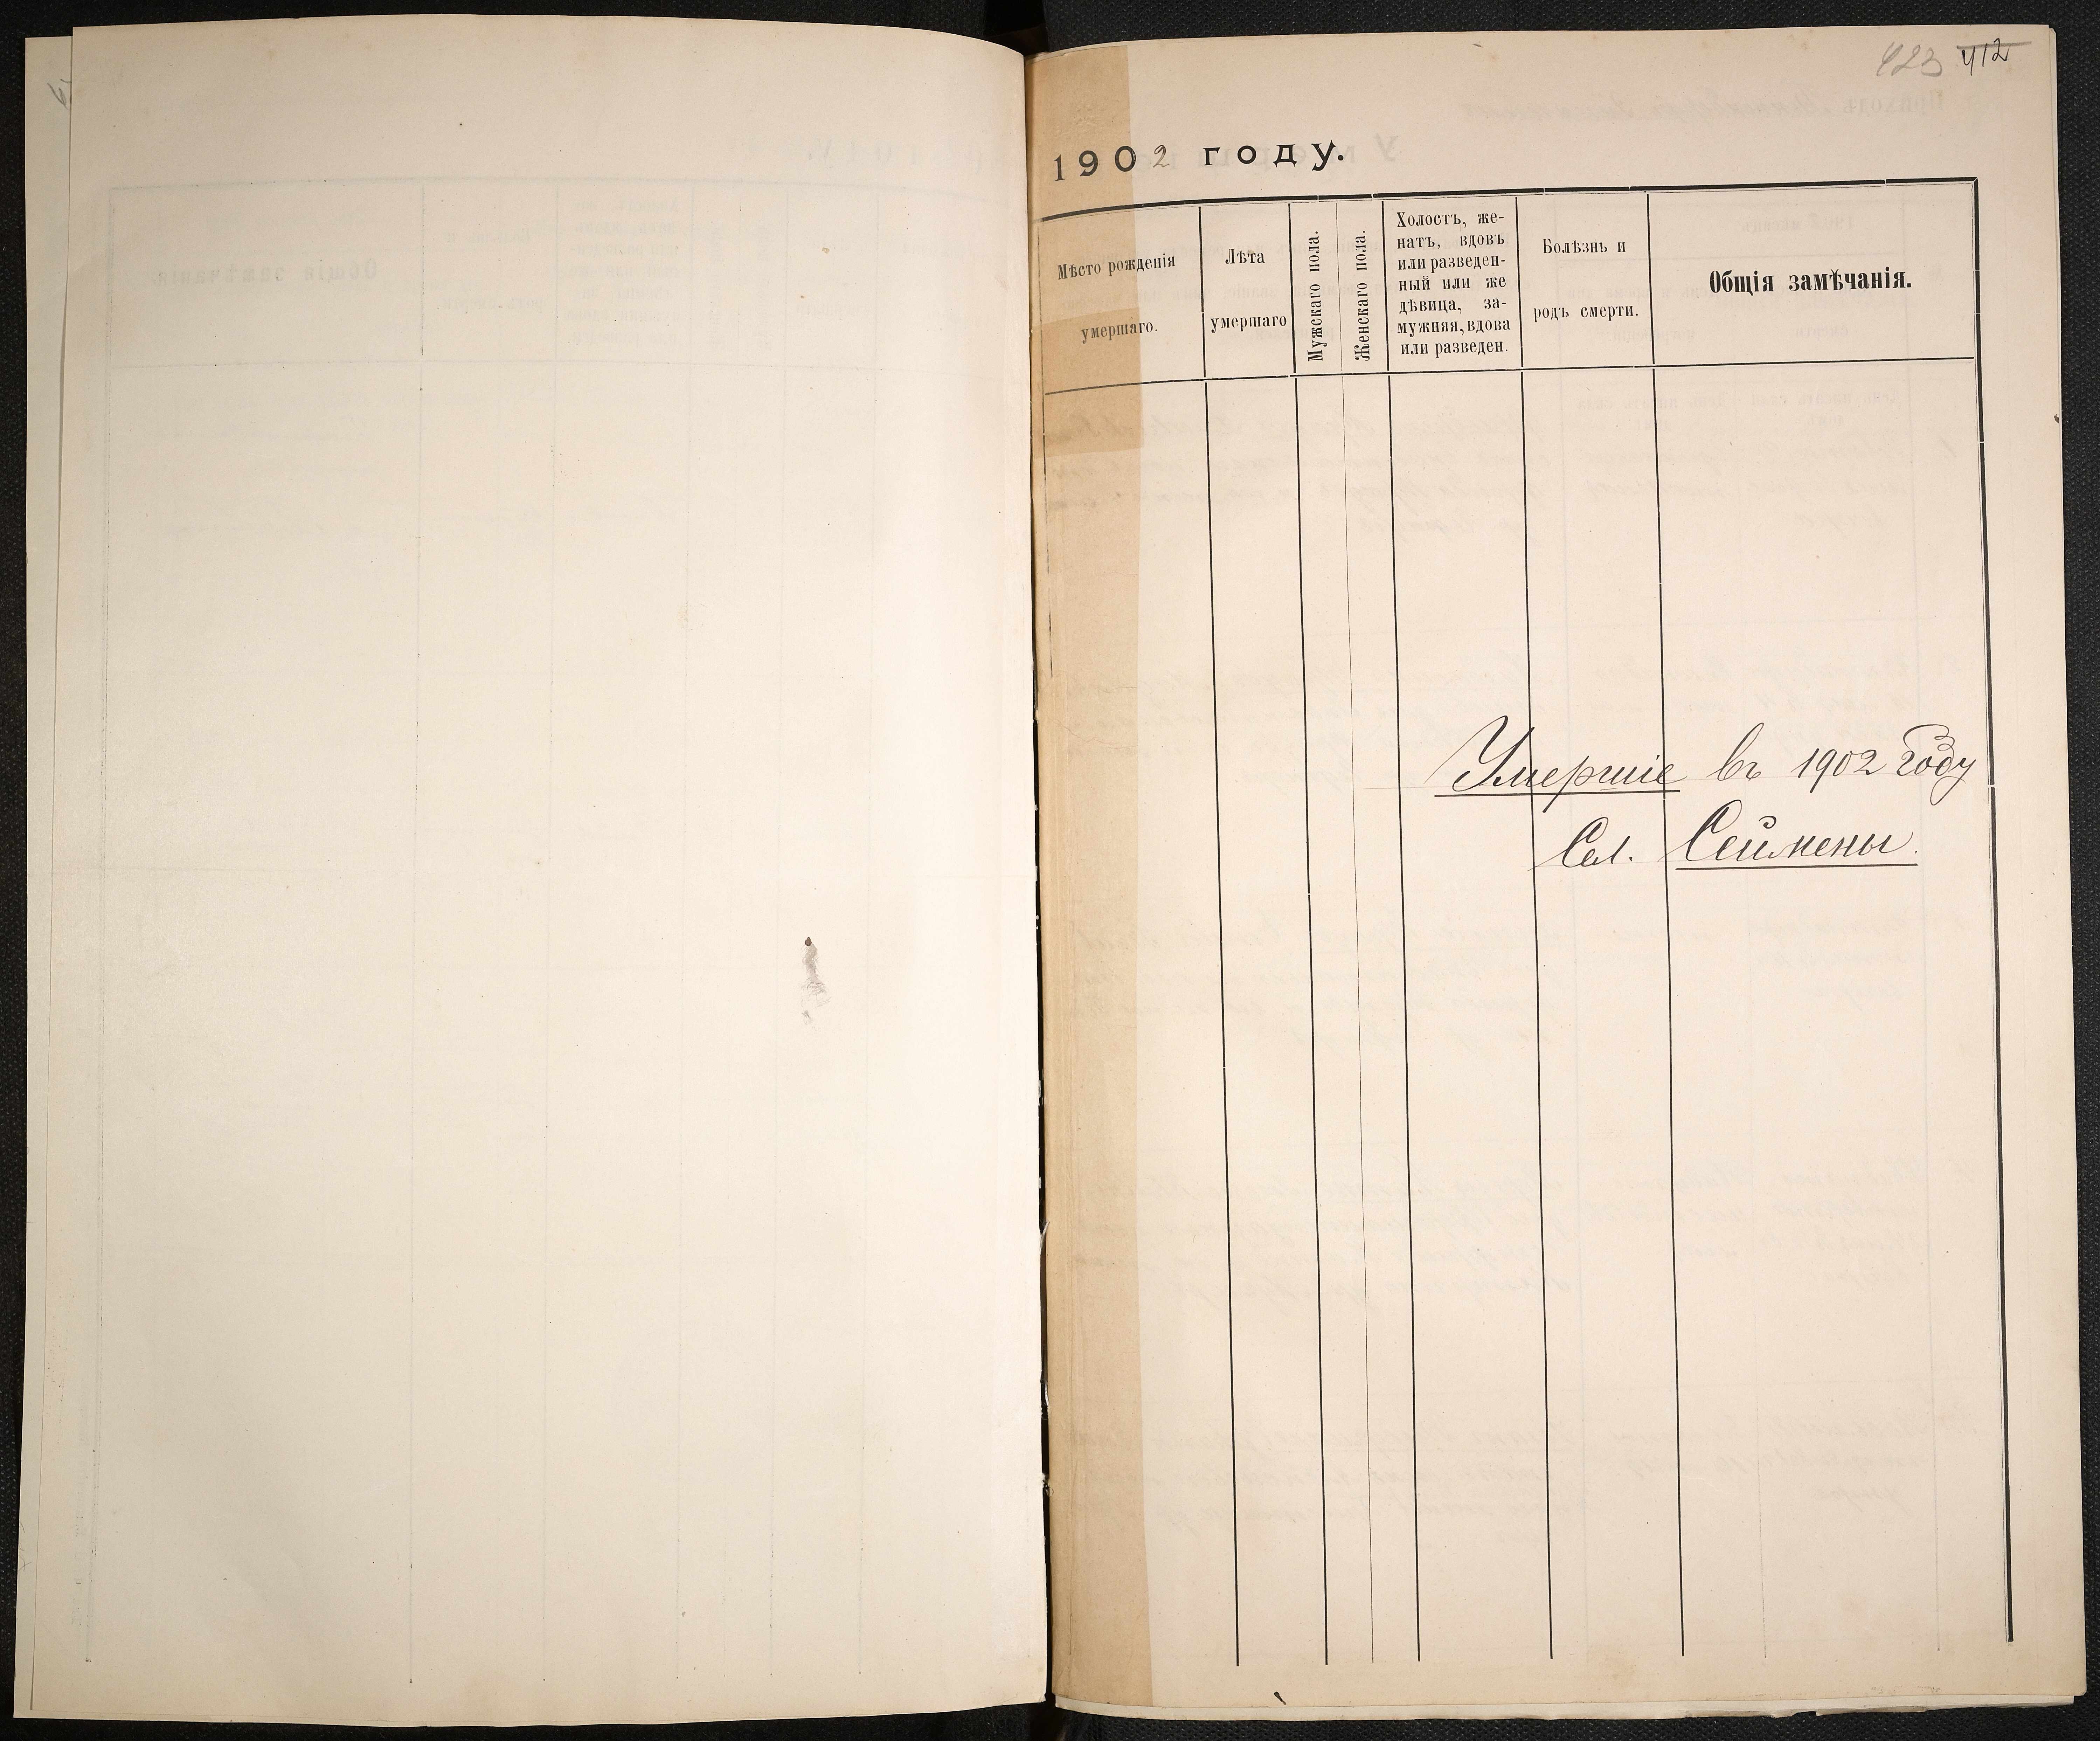 423 412
1902 году.
Мѣсто рожденія
умершаго.
Лѣта
умершаго
Мужскаго пола.
Женскаго пола.
Холостъ, же-
натъ, вдовъ
или разведен-
ный или же
дѣвица, за-
мужняя, вдова
или разведен.
Болѣзнь и
родъ смерти.
Общія замѣчанія.
Умершіе въ 1902 году
Сел. Сеймены.